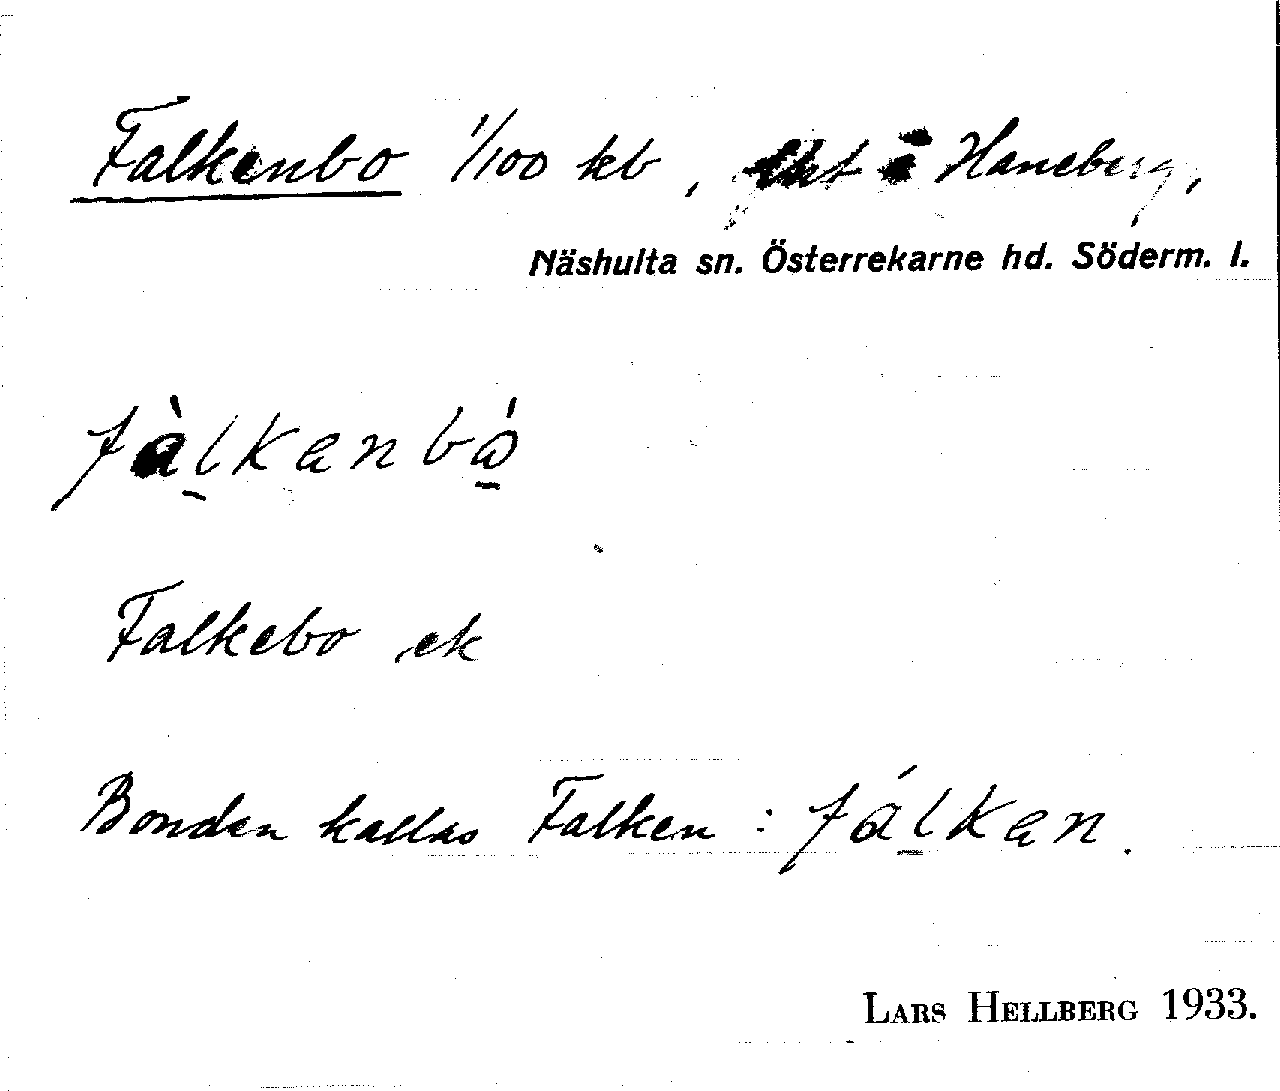 Falkenbo 1/100 kb, i Haneberg,
Näshulta sn. Österrekarne hd. Söderm. l.
fàlkanbó
Falkebo ek
Bonden kallas Falken: fálkan.
LARS HELLBERG 1933.